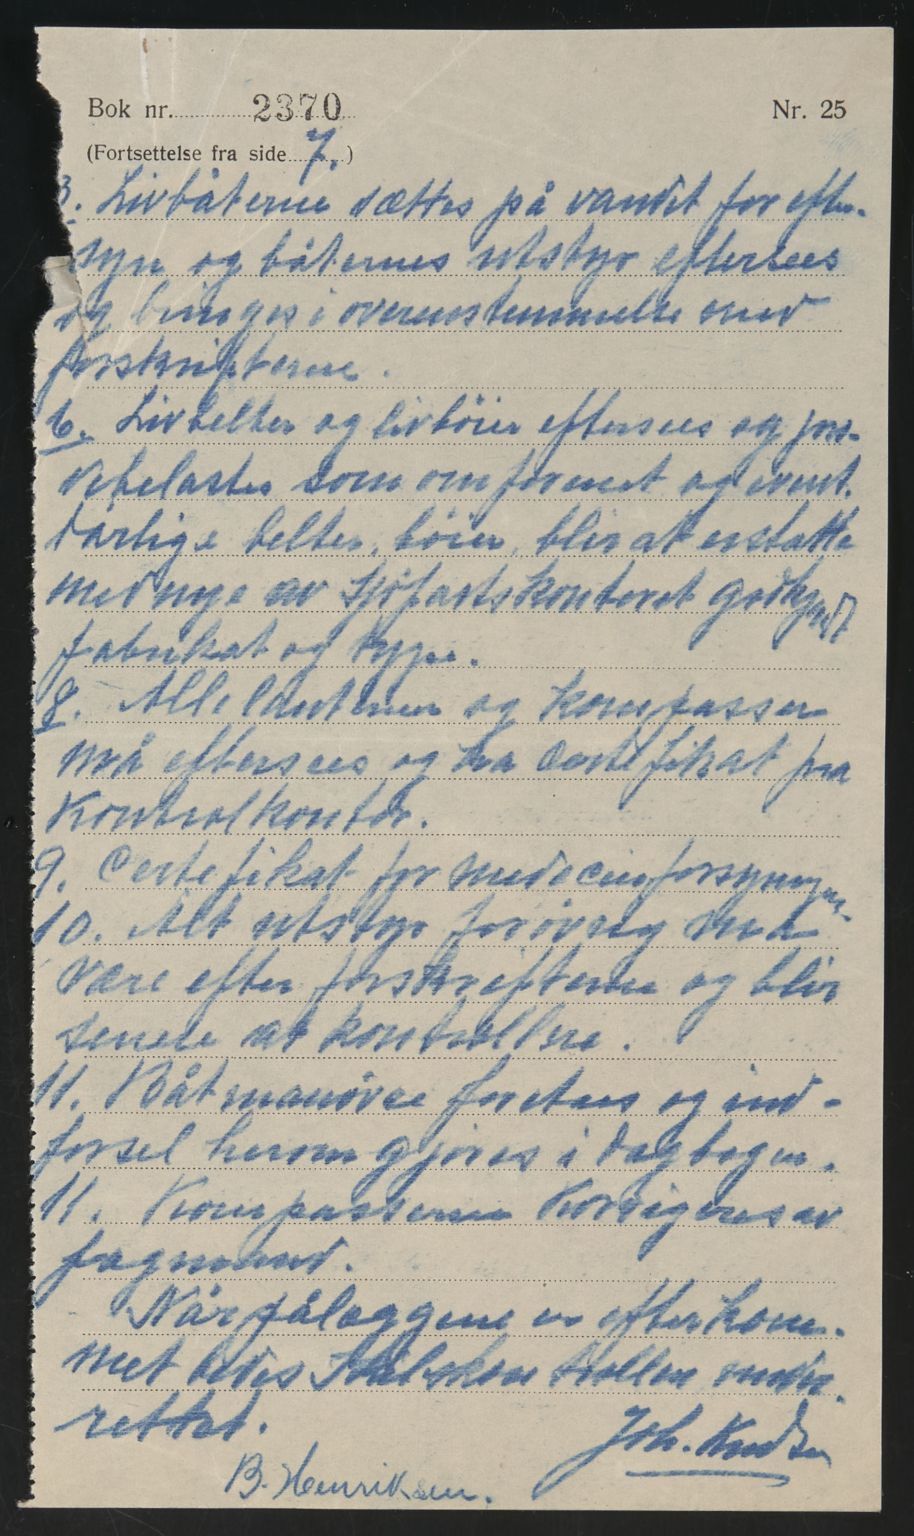 Bok nr. 2370 Nr. 25
(Fortsettelse fra side 7.)
3. Livbåterne sættes på vandet for efter-
syn og båternes utstyr eftersees
og bringes i overenstemmelse med
forskrifterne.
6. Livbelter og livbøier eftersees og prø-
vebelastes som omforenet og event.
dårlige belter, bøier, blir at erstatte
med nye av Sjøfartskontoret godkjendt
fabrikat og type.
8. Alle lanterner og kompasser
må eftersees og ha certefikat fra
Kontrolkontor.
9. Certefikat for medecinforsyningen.
10. Alt utstyr forøvrig må
være efter forskrifterne og blir
senere at kontrollere.
11. Båtmanøvre foretaes og ind-
førsel herom gjøres i dagbogen.
11. Kompasserne korrigeres av
fagmand.
Når påleggene er efterkom-
met bedes Skibskontrollen under-
rettet.
Joh. Knudsen
B. Henriksen.